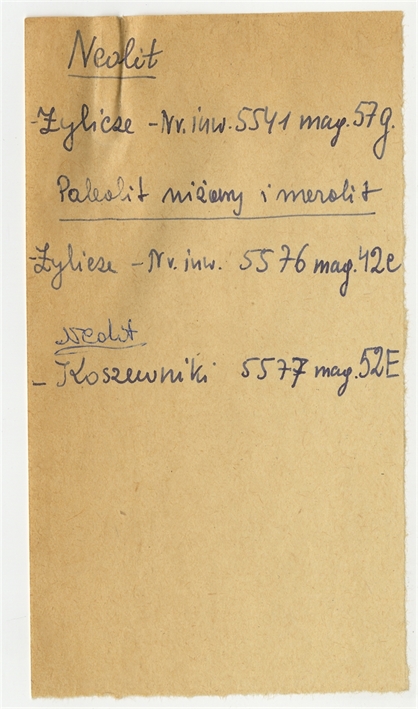 Neolit
- Żylicze - Nr. inw. 5541 mag. 57g.
Paleolit niżowy i mezolit
- Żylicze - Nr. inw. 5576 mag. 42c
Neolit
- Koszewniki 5577 mag. 52E